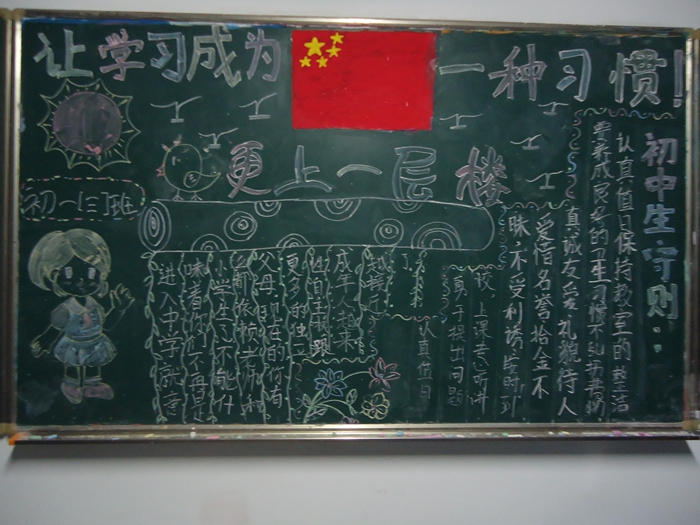 让学习成为一种习惯！
更上一层楼
初一(三)班
初中生守则：
认真值日保持教室的整洁
养成良好的卫生习惯不乱扔
真诚友爱礼貌待人
爱惜名誉拾金不
昧不受利诱
按时到
校，上课专心听讲
勇于提出问题
认真值日
进入中学就意
味着你们不再是
小学生了不能什
父母现在的你有
更多的独立
成年人越来